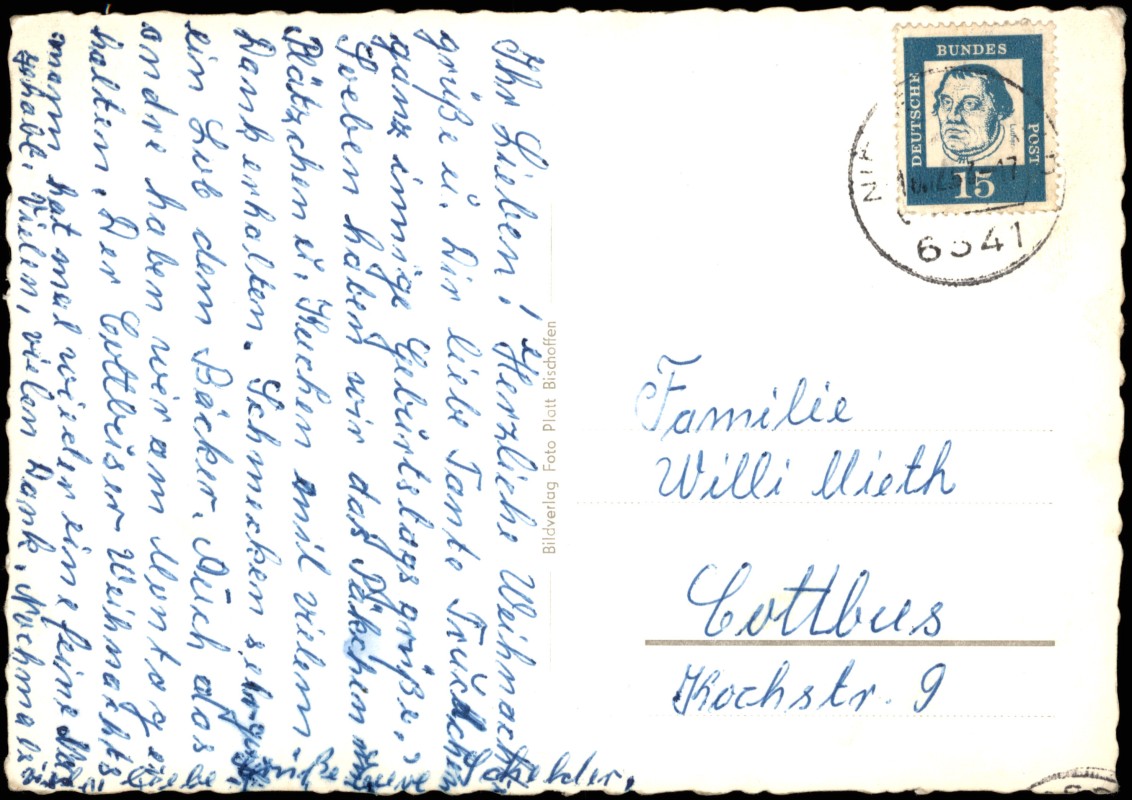 Ihr Lieben! Herzliche Weihnachts
grüße u. Dir liebe Tante Trudchen
ganz innige Geburtstagsgrüße,
Soeben haben wir das Päkchen m.
Plätzchen u. Kuchen mil vielem
Dank erhalten. Schmecken sehr gut
ein Lob dem Bäcker. Auch das
andre haben wir am Montag er
halten. Der Cottbüser Weihnachts
mann hat mal wieder eine feine
gehabt. Vielen, vielen Dank. Nochmals
viele liebe Grüße eure Schelder.
Bildverlag Foto Platt Bischoffen
DEUTSCHE
BUNDES
POST
15
6341
Familie
Willi Mieth
Cottbus
Kochstr. 9